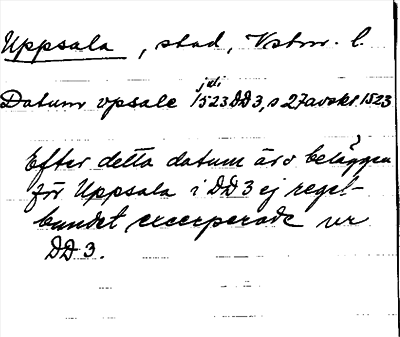 Uppsala, stad, Vstm. l.
Datum vpsale 1523 DD3, s 27 avskr. 1523
Efter detta datum äro beläggen
för Uppsala i DD3 ej regel-
bundet excerperade ur
DD3.